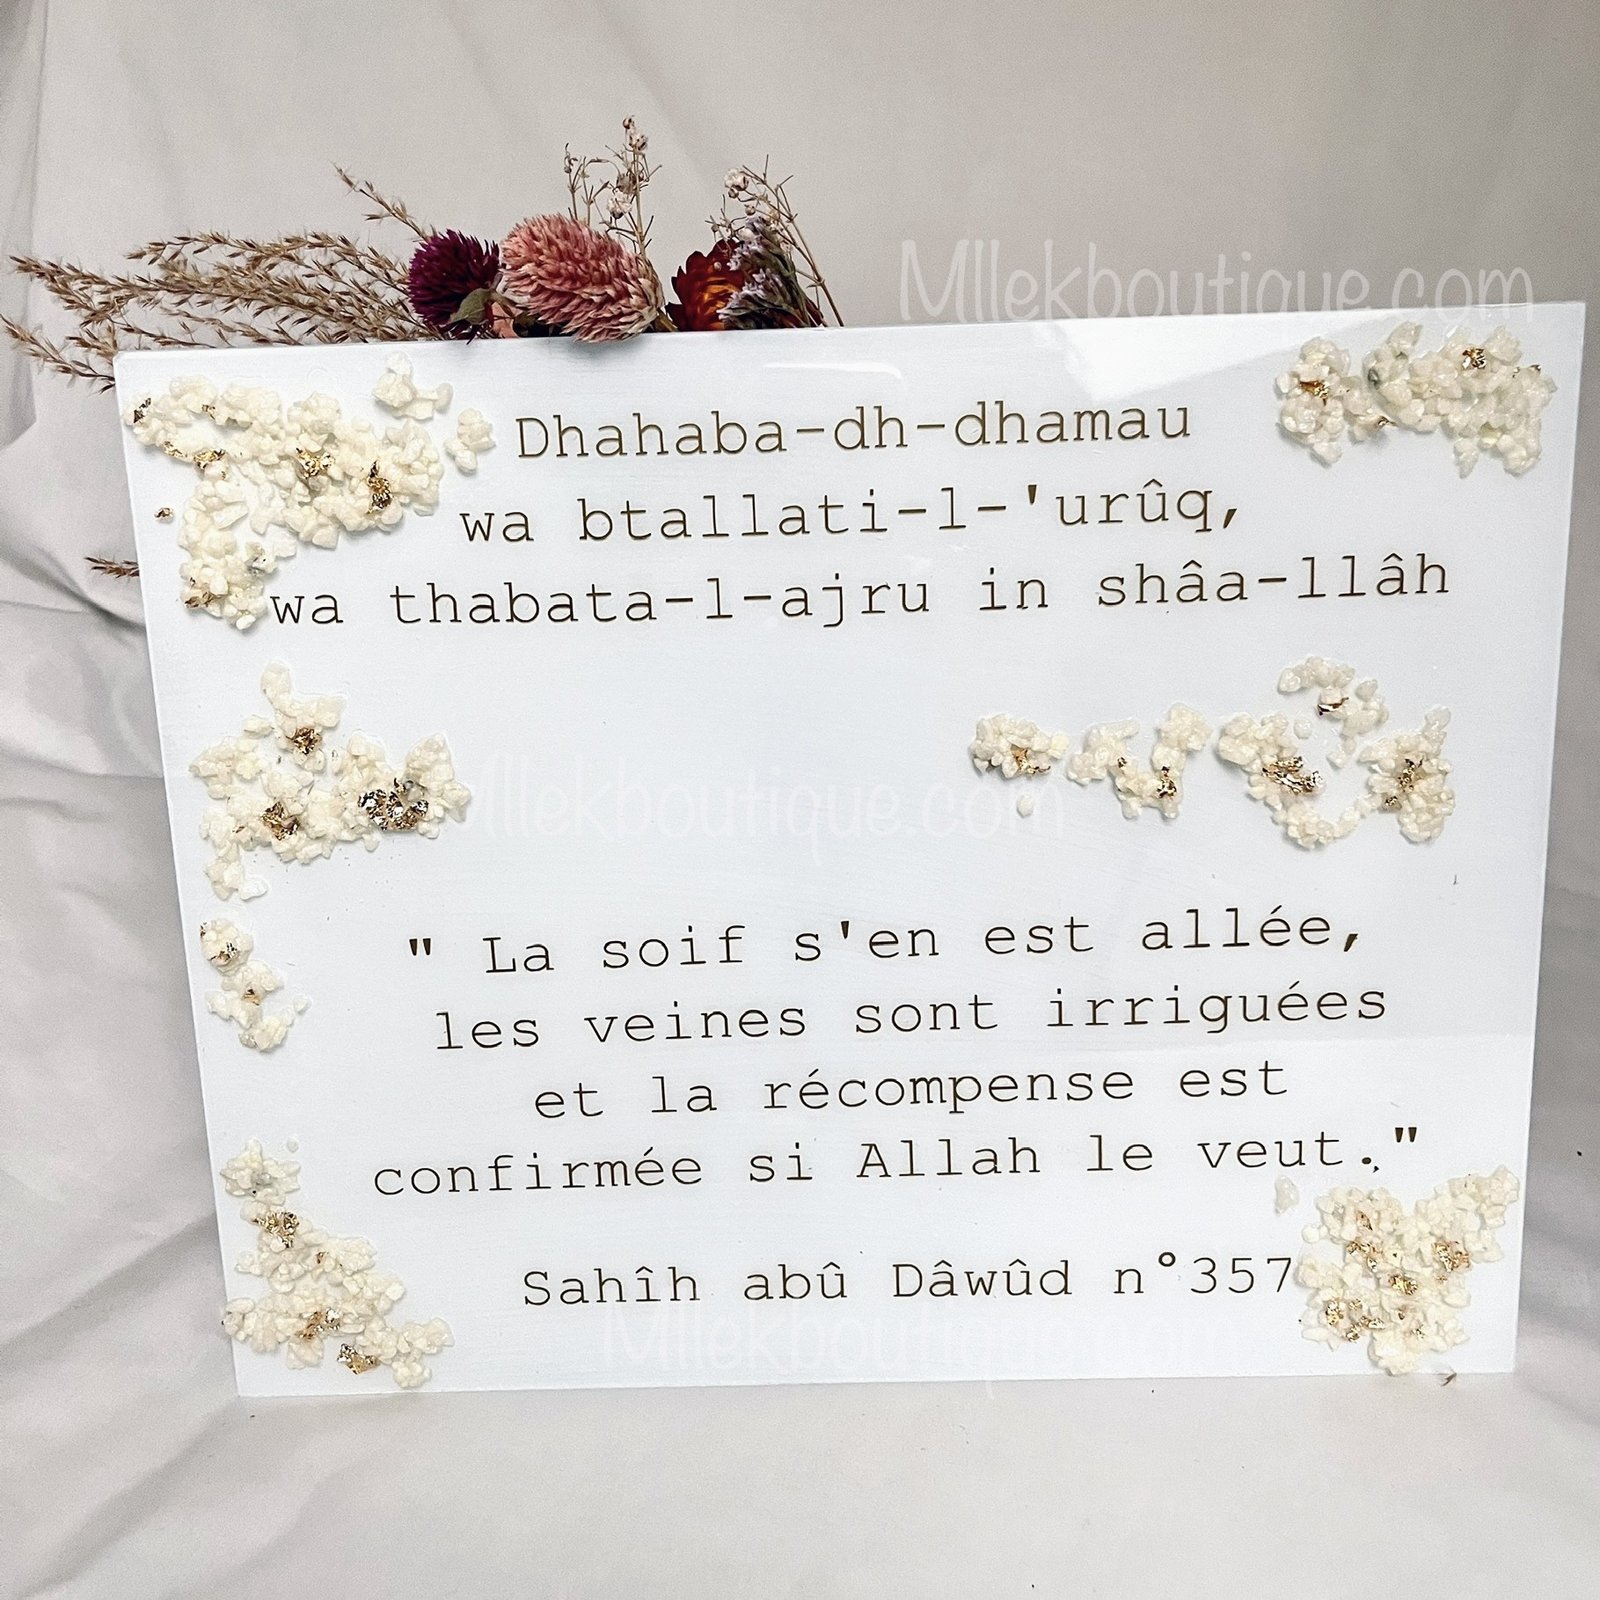 Mllekboutique.com
Dhahaba-dh-dhamau
wa btallati-l-'urûq,
wa thabata-l-ajru in shâa-llâh
Mllekboutique.com
" La soif s'en est allée,
les veines sont irriguées
et la récompense est
confirmée si Allah le veut."
Sahîh abû Dâwûd n°357
Mllekboutique